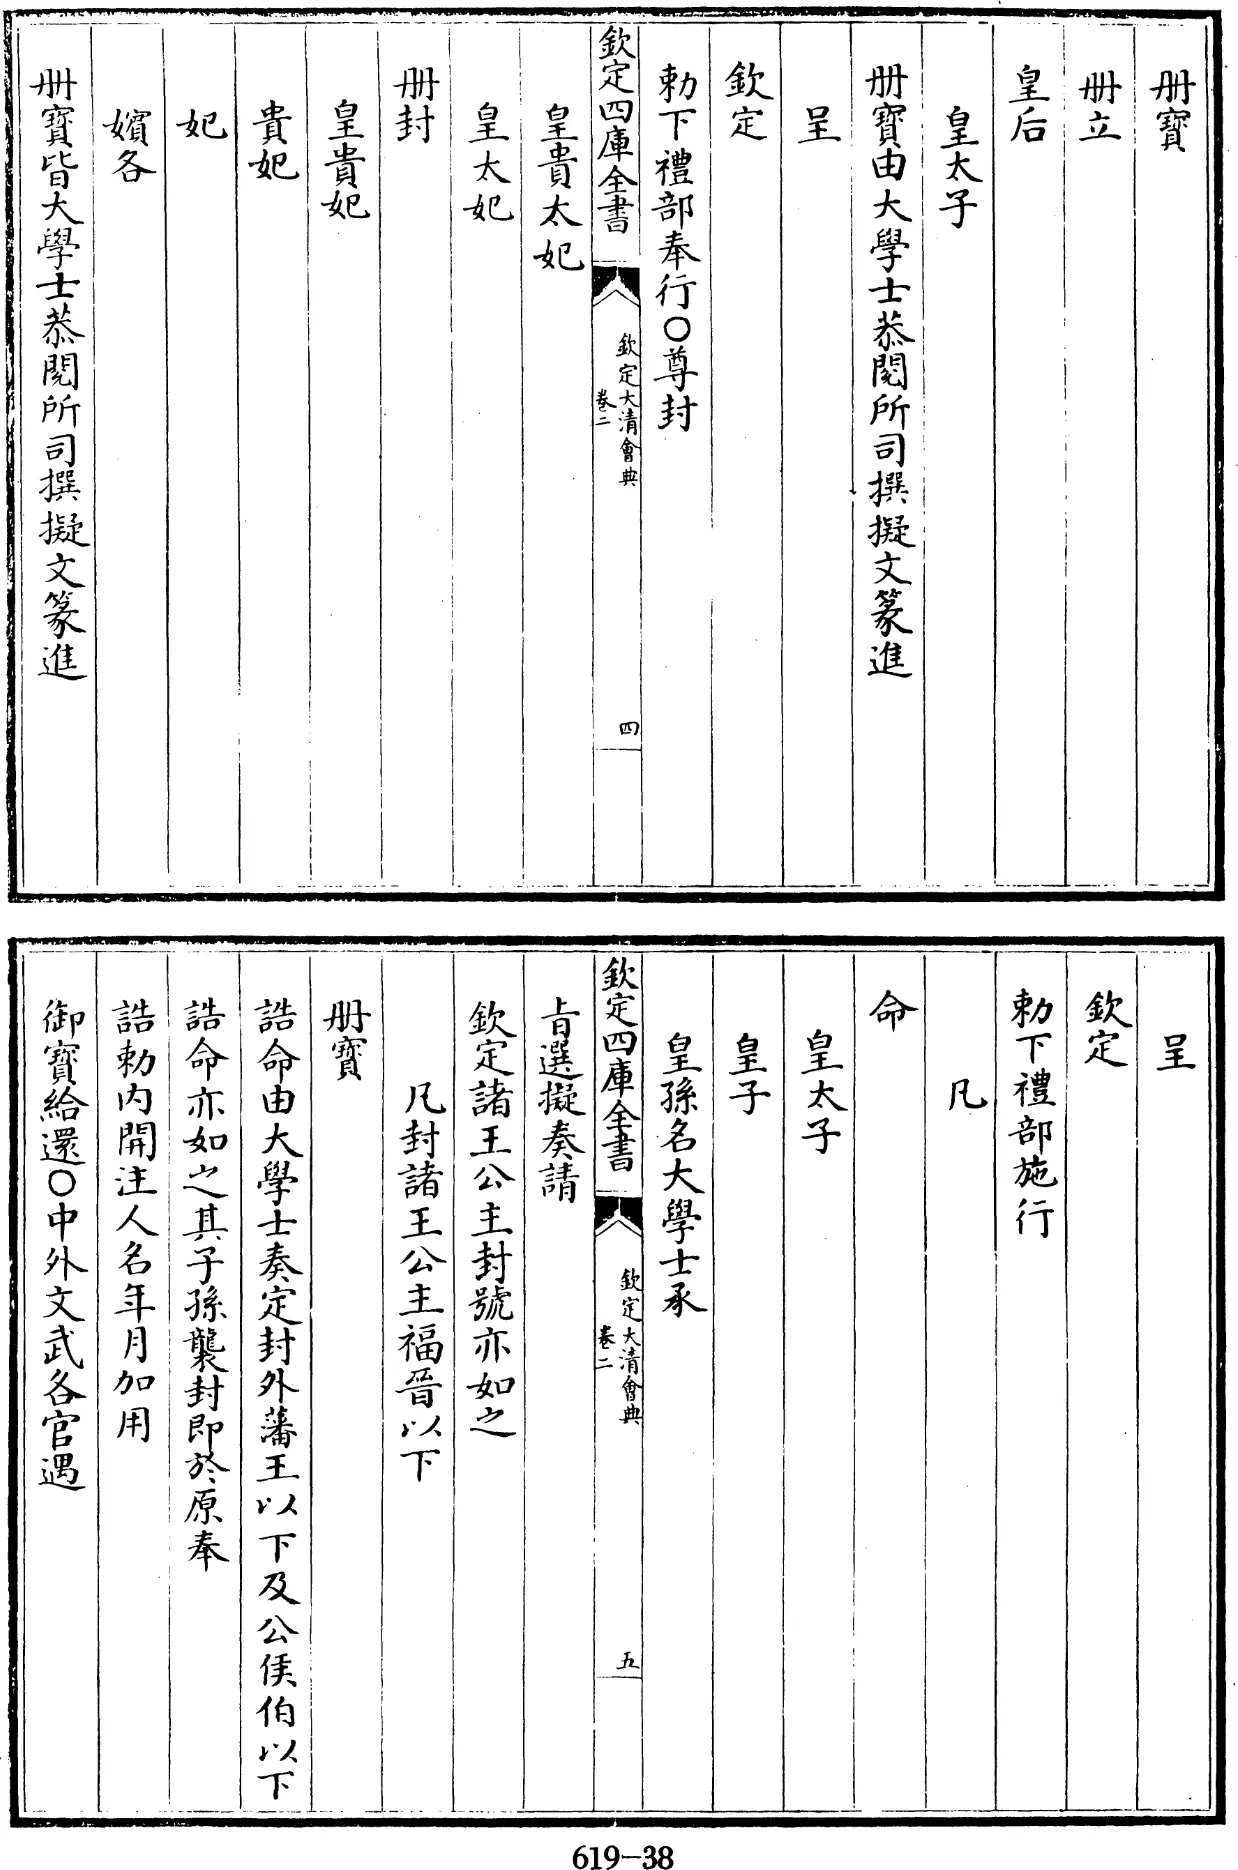 册寳
册立
皇后
皇太子
册寳由大學士恭閱所司撰擬文篆進
呈
欽定
勅下禮部奉行○尊封
欽定四庫全書
欽定大清會典
卷二
四
皇貴太妃
皇太妃
册封
皇貴妃
貴妃
妃
嬪各
册寳皆大學士恭閱所司撰擬文篆進
呈
欽定
勅下禮部施行
凡
命
皇太子
皇子
皇孫名大學士承
欽定四庫全書
欽定大清會典
卷二
五
旨選擬奏請
欽定諸王公主封號亦如之
凡封諸王公主福晉以下
册寳
誥命由大學士奏定封外藩王以下及公侯伯以下
誥命亦如之其子孫襲封即於原奉
誥勅内開注人名年月加用
御寳給還○中外文武各官遇
619-38